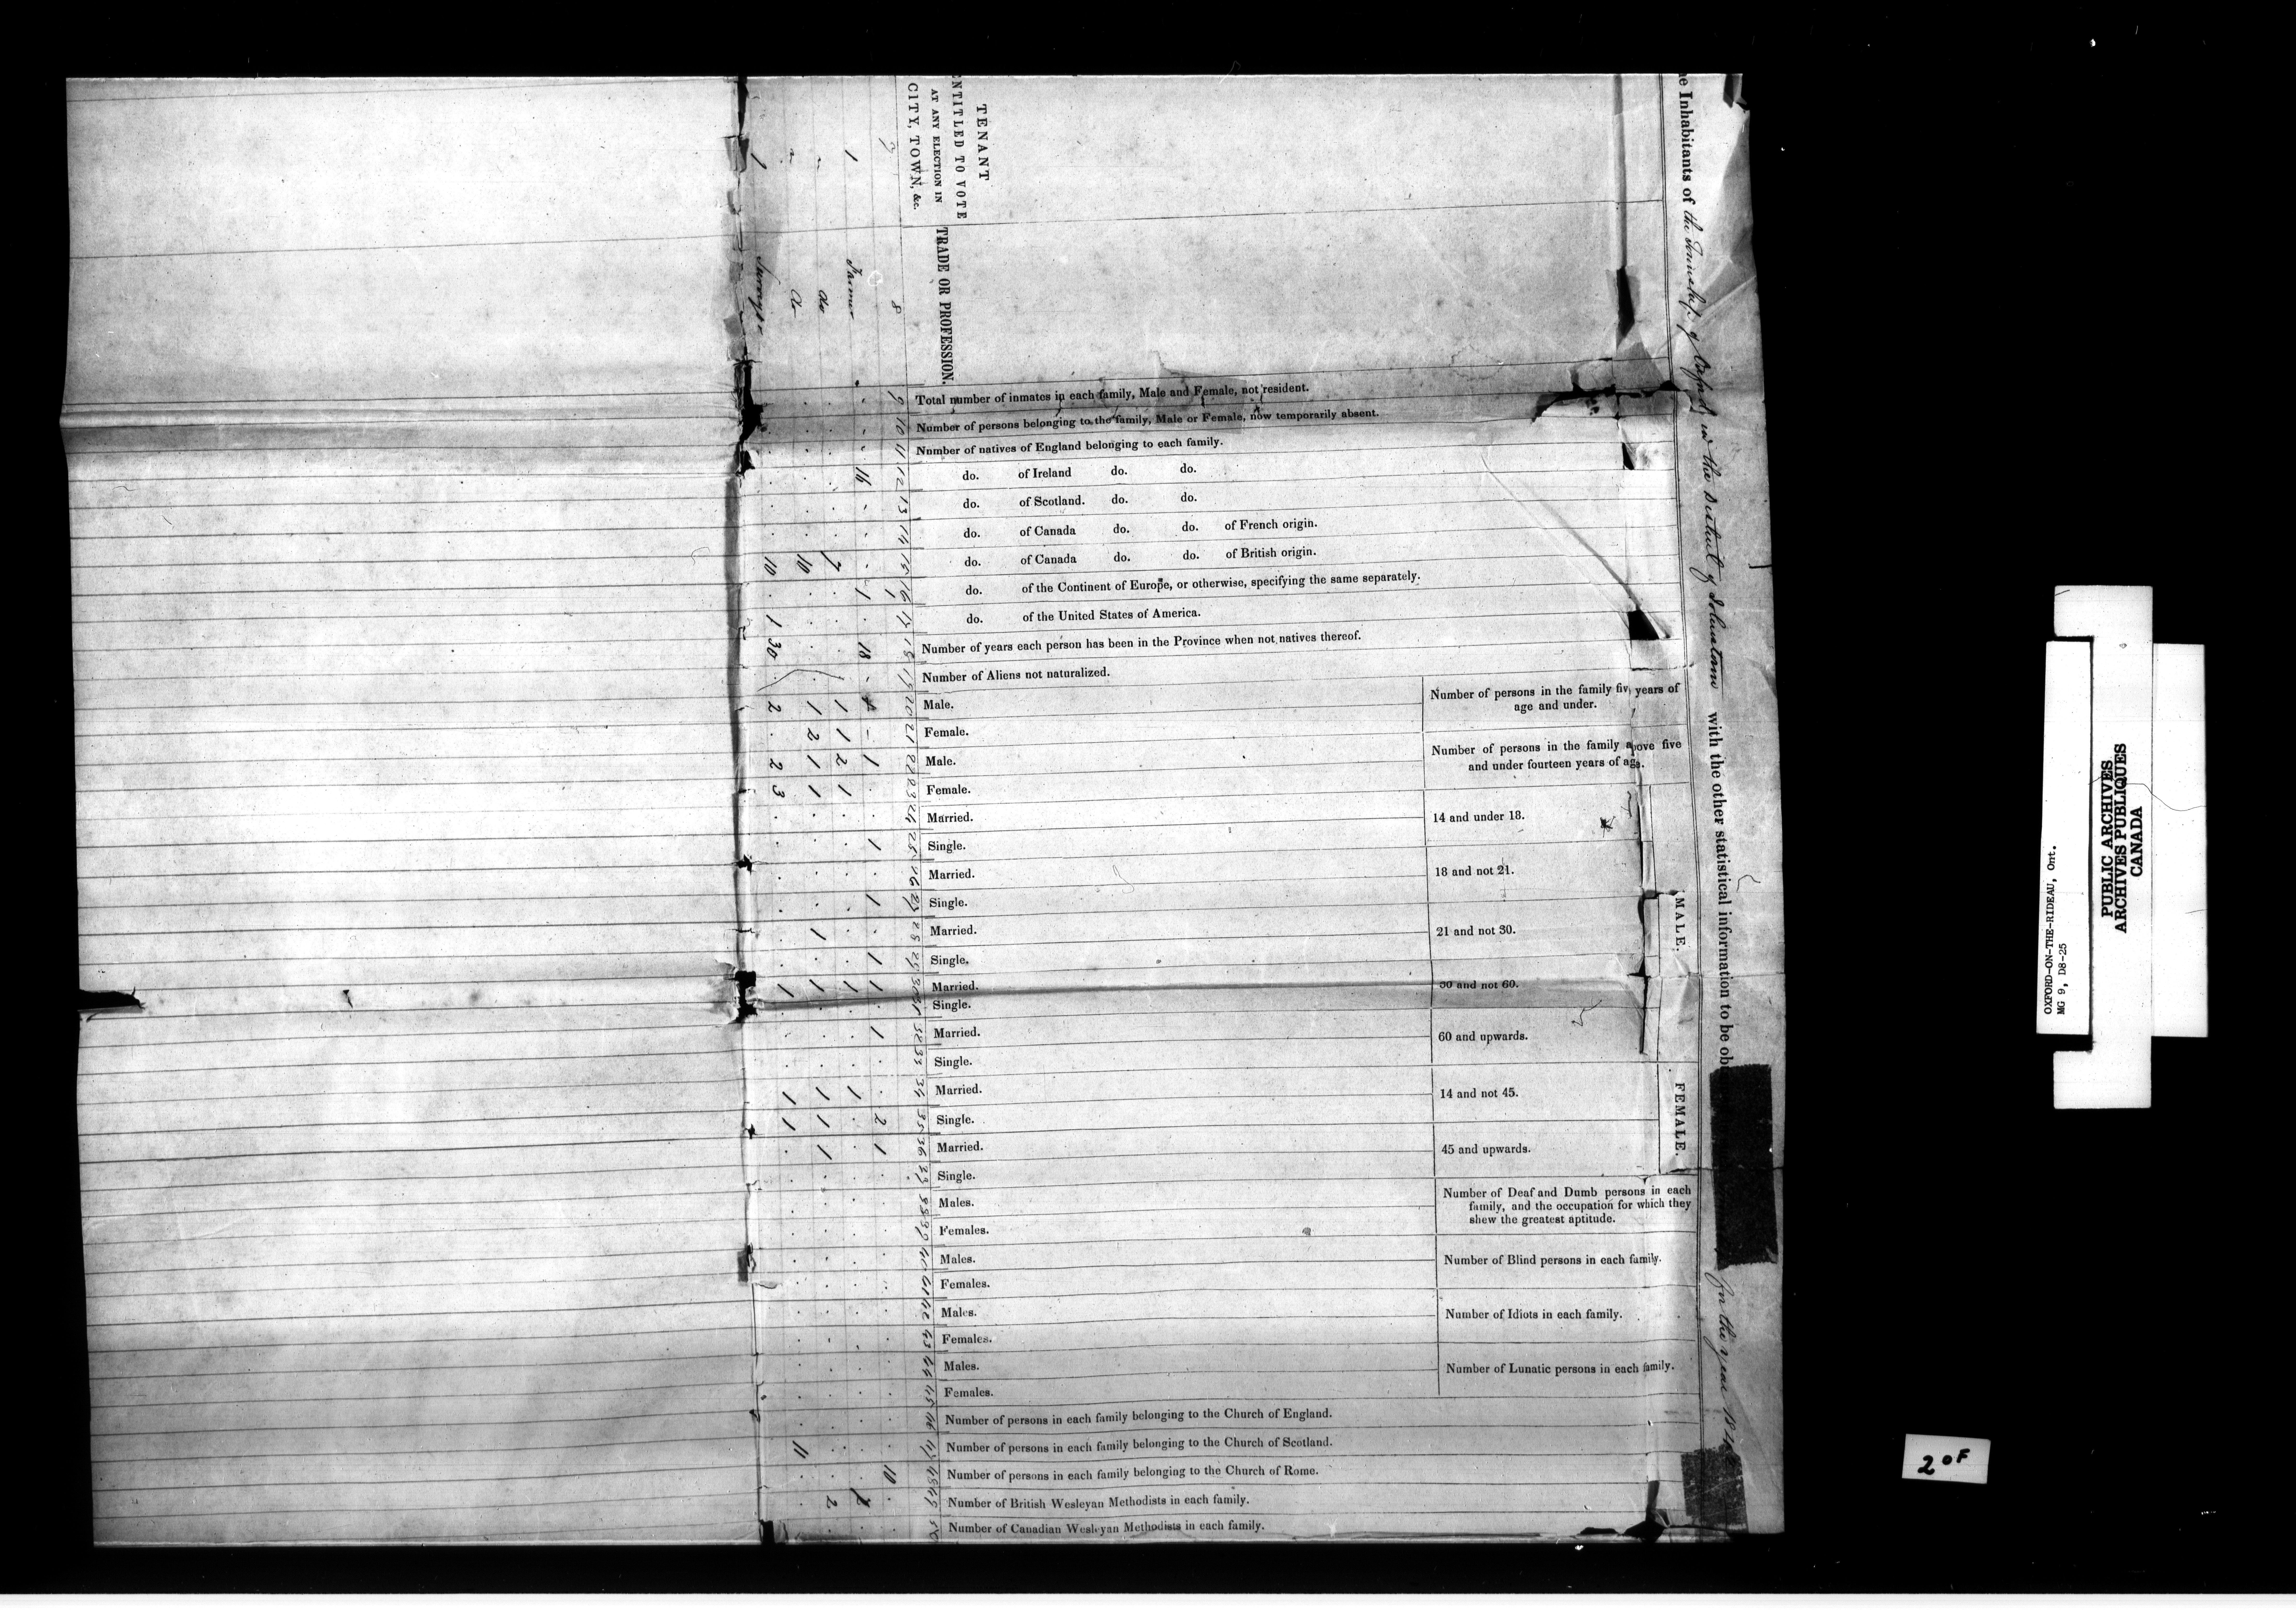 he Inhabitants of the Township of Oxford in the District of Johnstown with the other statistical information to be ob
for the year 184
TENANT
ENTITLED TO VOTE
AT ANY ELECTION IN
CITY, TOWN, &c.
TRADE OR PROFESSION.
Total number of inmates in each family, Male and Female, not resident.
Number of persons belonging to the family, Male or Female, now temporarily absent.
Number of natives of England belonging to each family.
do. of Ireland do. do.
do. of Scotland. do. do.
do. of Canada do. do. of French origin.
do. of Canada do. do. of British origin.
do. of the Continent of Europe, or otherwise, specifying the same separately.
do. of the United States of America.
Number of years each person has been in the Province when not natives thereof.
Number of Aliens not naturalized.
Number of persons in the family five years of
age and under.
Male.
Female.
Number of persons in the family above five
and under fourteen years of age.
Male.
Female.
MALE.
14 and under 18.
Married.
Single.
18 and not 21.
Married.
Single.
21 and not 30.
Married.
Single.
30 and not 60.
Married.
Single.
60 and upwards.
Married.
Single.
FEMALE.
14 and not 45.
Married.
Single.
45 and upwards.
Married.
Single.
Number of Deaf and Dumb persons in each
family, and the occupation for which they
shew the greatest aptitude.
Males.
Females.
Number of Blind persons in each family.
Males.
Females.
Number of Idiots in each family.
Males.
Females.
Number of Lunatic persons in each family.
Males.
Females.
Number of persons in each family belonging to the Church of England.
Number of persons in each family belonging to the Church of Scotland.
Number of persons in each family belonging to the Church of Rome.
Number of British Wesleyan Methodists in each family.
Number of Canadian Wesleyan Methodists in each family.
7 8 9 10 11 12 13 14 15 16 17 18 19 20 21 22 23 24 25 26 27 28 29 30 31 32 33 34 35 36 37 38 39 40 41 42 43 44 45 46 47 48 49 50
1 Farmer 16 1 18 1 1 1 1 1 1 2 1 10
do 7 1 1 2 1 1 1
do 10 1 2 1 1 1 1 1 1 1 2
1 10 1 30 2 2 3 1 1 1 11
OXFORD-ON-THE-RIDEAU, Ont.
MG 9, D8-25
PUBLIC ARCHIVES
ARCHIVES PUBLIQUES
CANADA
2 OF